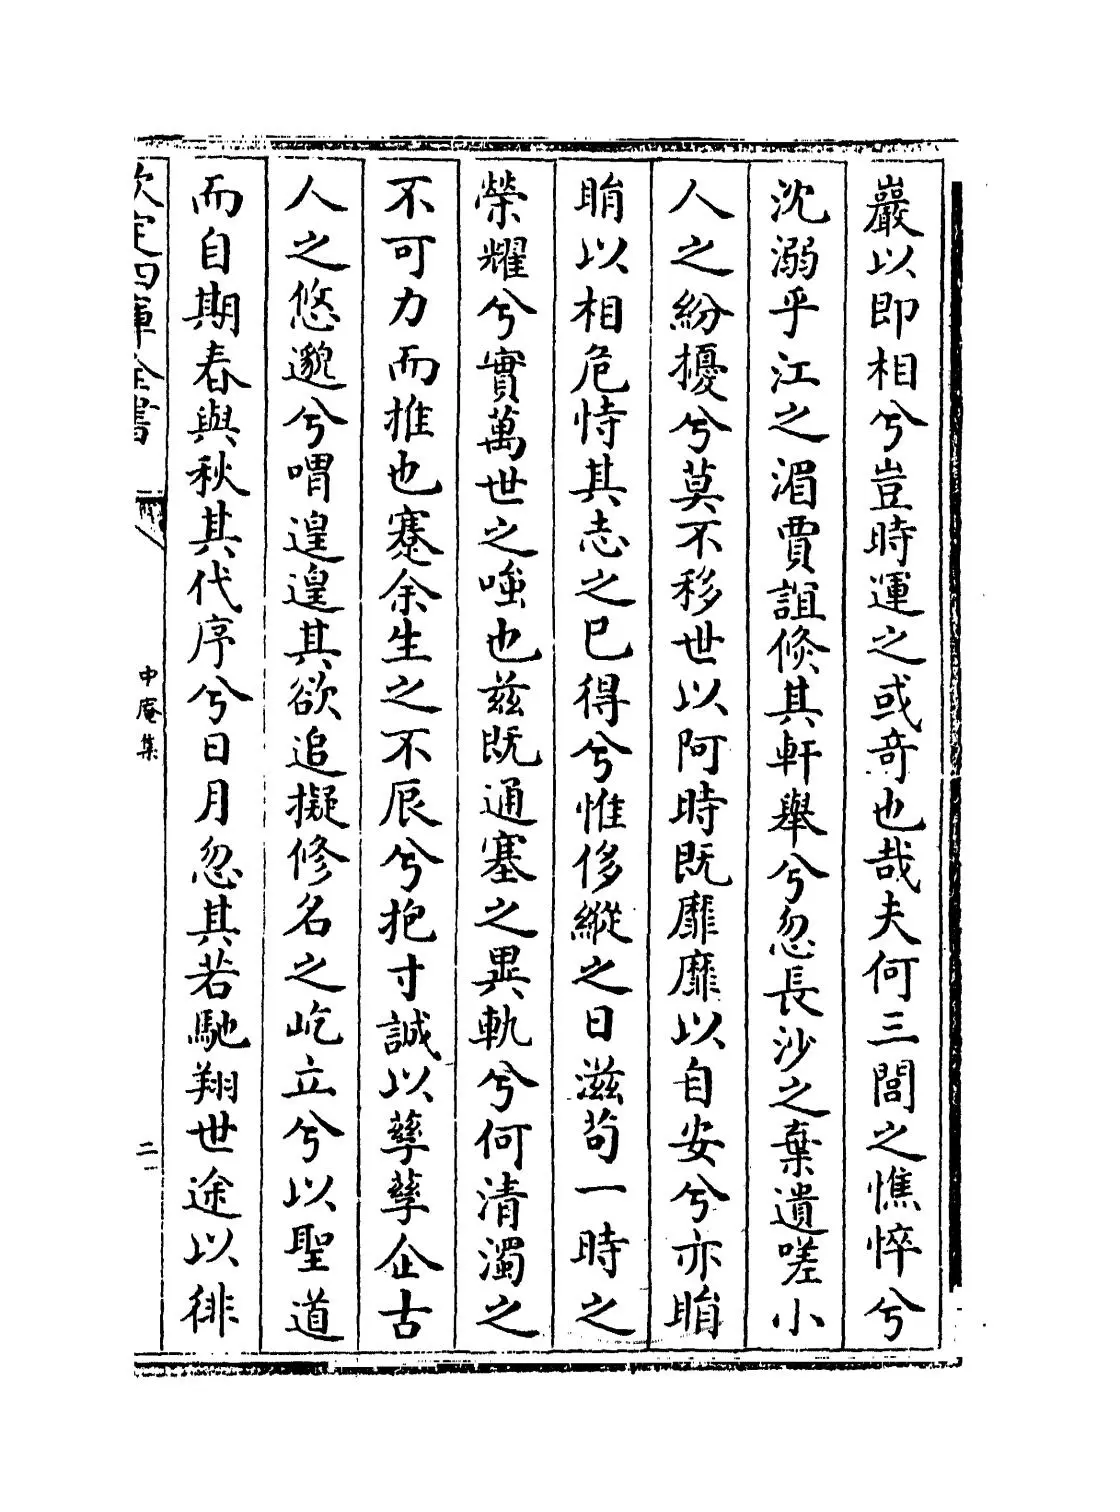 巖以即相兮豈時運之或奇也哉夫何三閭之憔悴兮
沈溺乎江之湄賈誼倐其軒舉兮忽長沙之棄遺嗟小
人之紛擾兮莫不移世以阿時既靡靡以自安兮亦睊
睊以相危恃其志之已得兮惟侈縱之日滋茍一時之
榮耀兮實萬世之嗤也兹既通塞之異軌兮何清濁之
不可力而推也蹇余生之不辰兮抱寸誠以孳孳企古
人之悠邈兮喟遑遑其欲追擬修名之屹立兮以聖道
而自期春與秋其代序兮日月忽其若馳翔世途以徘
欽定四庫全書
中庵集
二